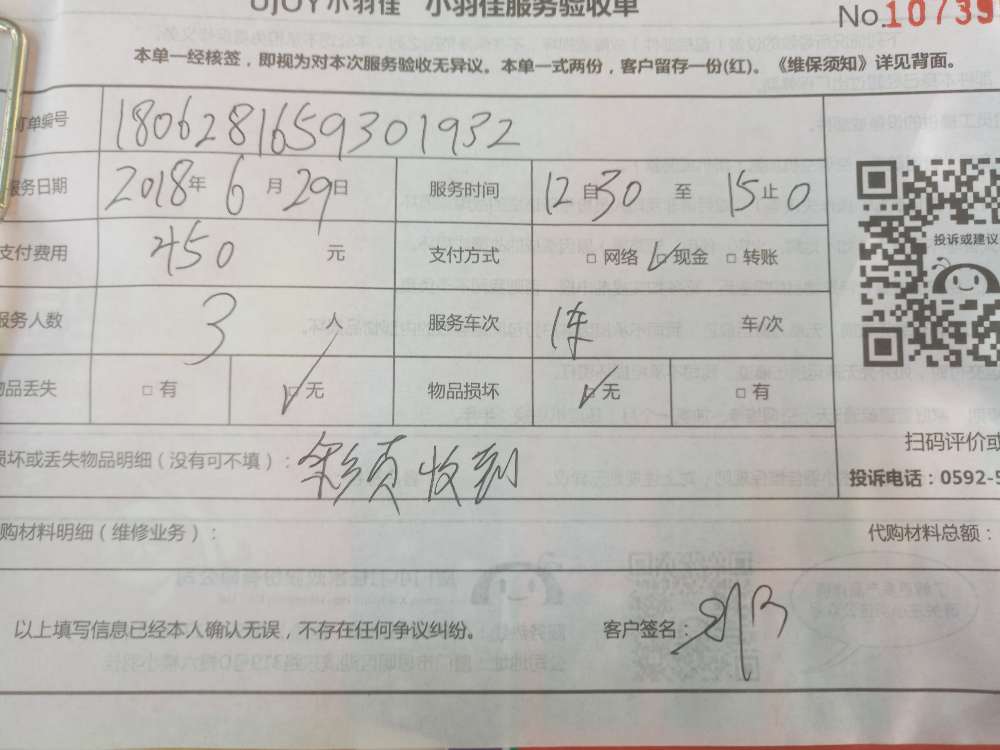 UJOY小羽佳 小羽佳服务验收单
No.10739
本单一经核签，即视为对本次服务验收无异议。本单一式两份，客户留存一份(红)。《维保须知》详见背面。
订单编号 1806281659301932
服务日期 2018年 6月 29日 服务时间 12自30 至 15止0
支付费用 450 元 支付方式 □网络 ☑现金 □转账
服务人数 3 人 服务车次 车/次
物品丢失 □有 ☑无 物品损坏 ☑无 □有
投诉或建议
损坏或丢失物品明细（没有可不填）： 收到
扫码评价或
投诉电话：0592-5
购材料明细（维修业务）： 代购材料总额：
以上填写信息已经本人确认无误，不存在任何争议纠纷。 客户签名：